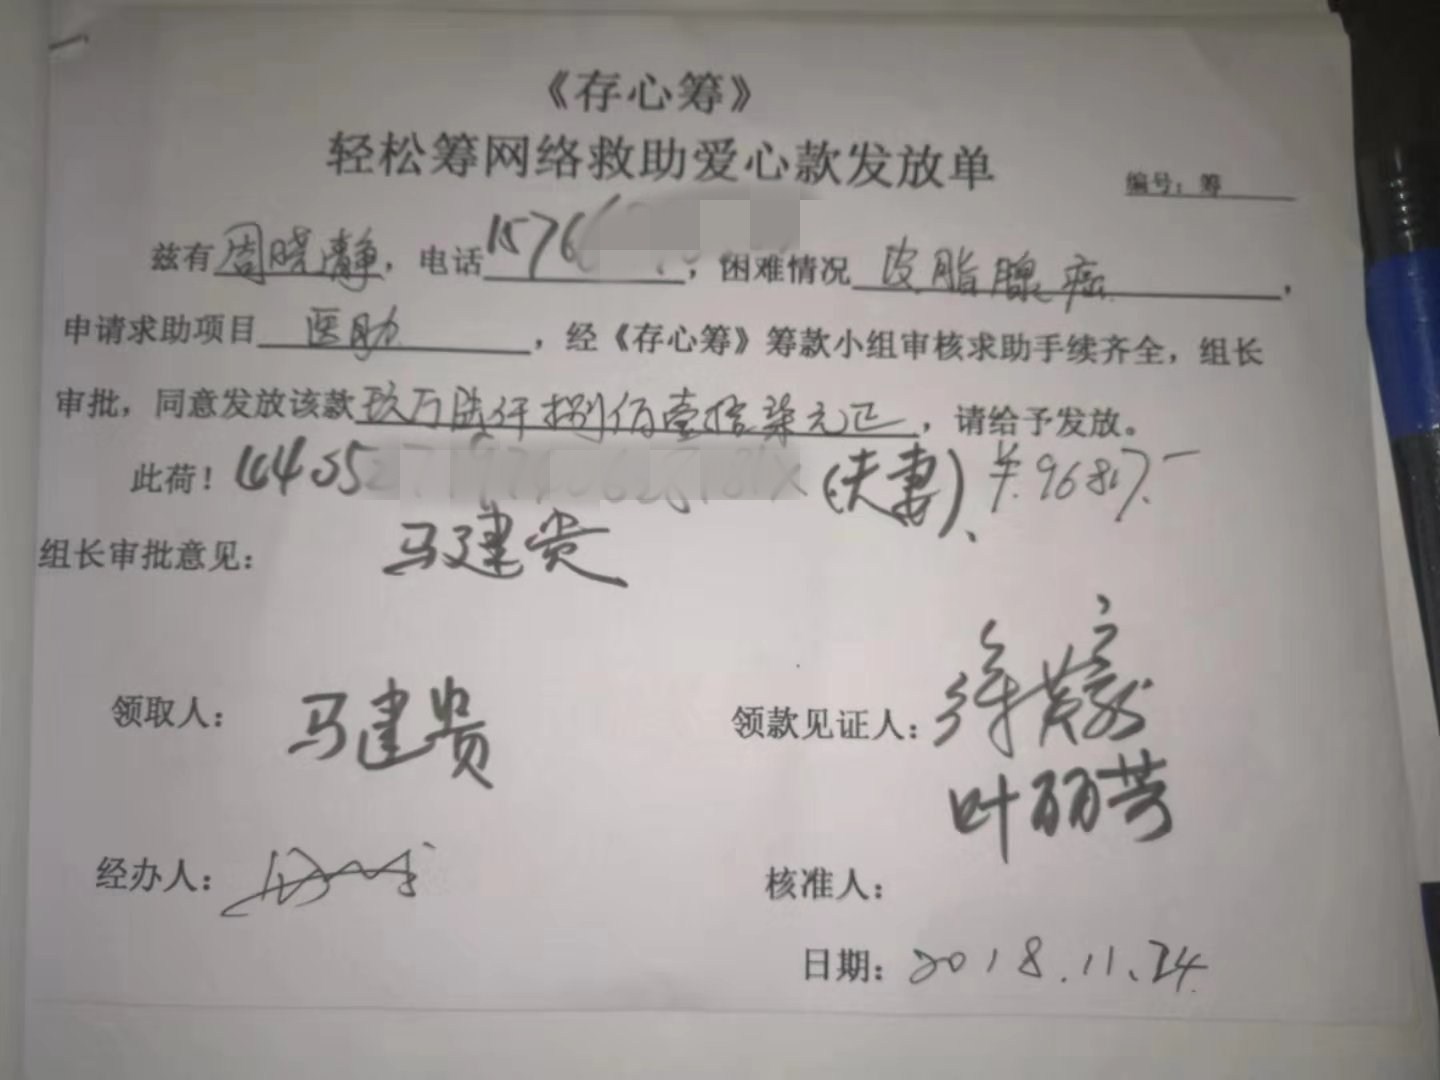 《存心筹》
轻松筹网络救助爱心款发放单
编号：筹
兹有周晓静，电话1576，困难情况皮脂腺癌，
申请求助项目医助，经《存心筹》筹款小组审核求助手续齐全，组长
审批，同意发放该款玖万陆仟捌佰壹拾柒元正，请给予发放。
此荷！(夫妻)、￥96817.-
组长审批意见：马建贵
领取人：马建贵
领款见证人：
叶丽芳
经办人：
核准人：
日期：2018.11.24